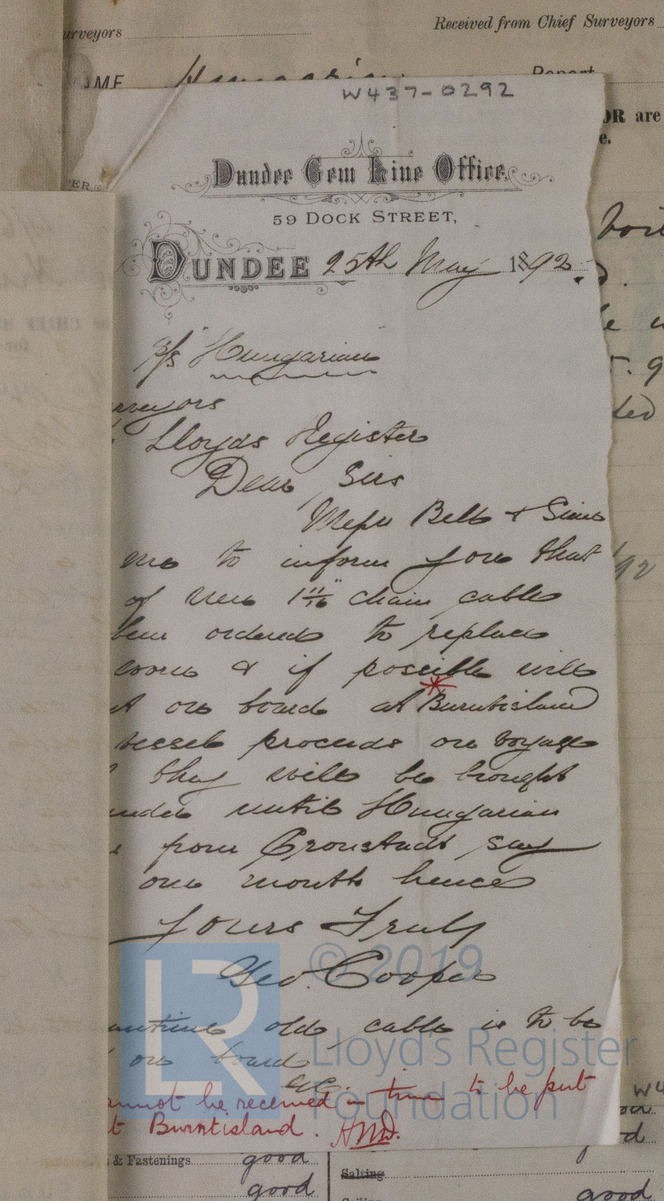 urveyors
Received from Chief Surveyors
W437-0292
OR are
Dundee Gem Line Office.
59 DOCK STREET,
DUNDEE 25th May 1892.
S/S Hungarian
rveyors
Lloyds Register
Dear Sirs
Messrs Bell & Sime
me to inform you that
of new 1 11/16" chain cable
been ordered to replace
& if possible will
on board at Burntisland
vessel proceeds on voyage
they will be brought
until Hungarian
from Cronstadt say
one month hence
Yours Truly
Geo. Cooper
old cable is to be
on board
GC.
annot be received in time to be put
t Burntisland.
© 2019
Lloyd's Register
Foundation
& Fastenings good
good
Salting
good